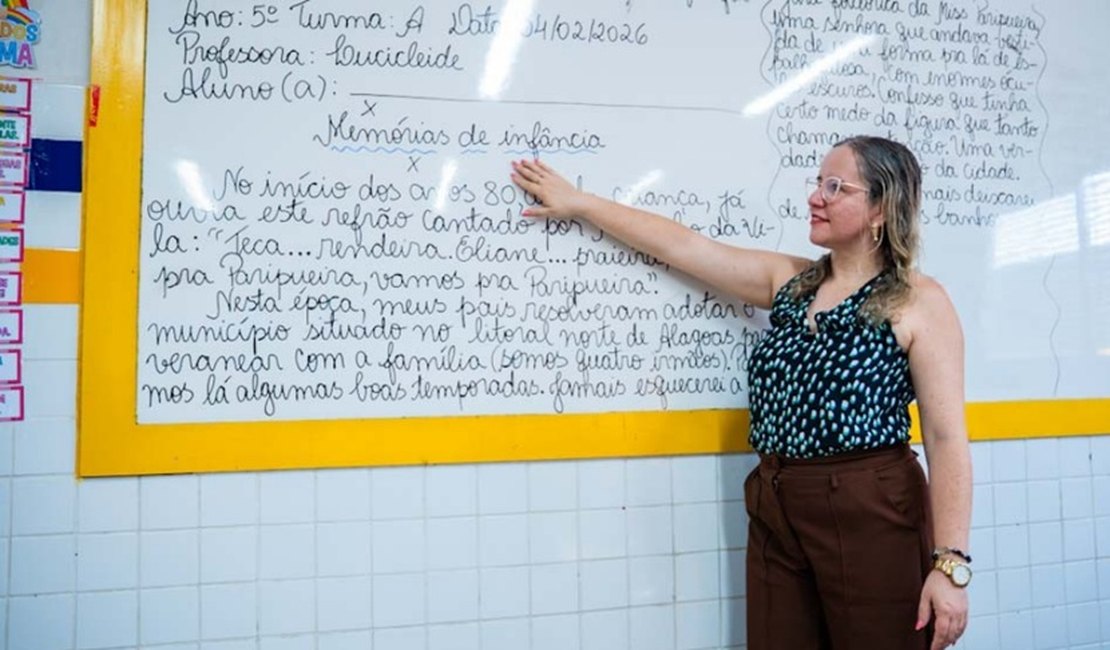 Ano: 5º Turma: A Data 04/02/2026
Professora: Lucicleide
Aluno(a):
x
Memórias de infância
x
No início dos anos 80, criança, já
ouvia este refrão cantado por da Vi-
la: "Teca... rendeira. Eliane... praieira,
pra Paripueira, vamos pra Paripueira".
Nesta época, meus pais resolveram adotar o
município situado no litoral norte de Alagoas pa
veranear com a família (somos quatro irmãos).
mos lá algumas boas temporadas. Jamais esquecerei a
folclórica da Miss Paripueira,
uma senhora que andava vesti-
da de uma forma pra lá de es-
palhafatosa, com enormes ócu-
escuros. Confesso que tinha
certo medo da figura que tanto
chamava Uma ver-
dad da cidade.
mais deixarei
de banho
DOS
MA